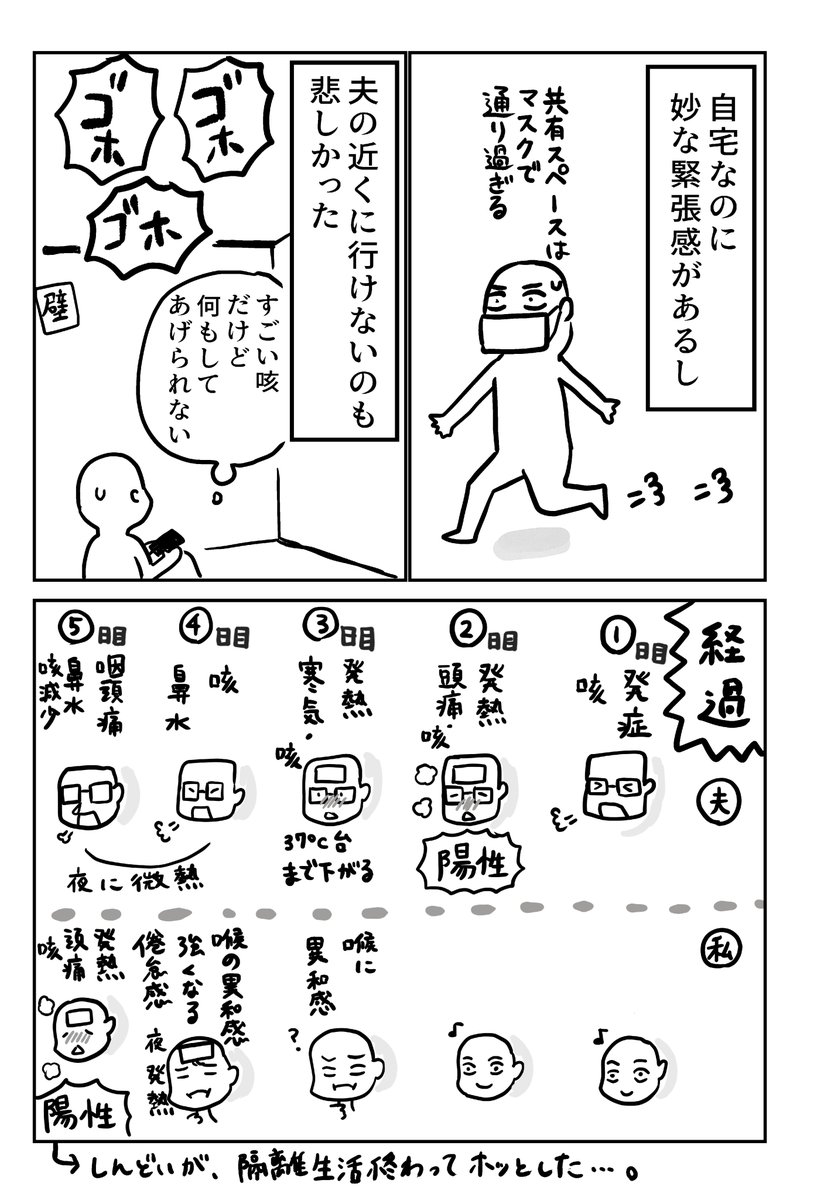 自宅なのに
妙な緊張感があるし
共有スペースは
マスクで
通り過ぎる
夫の近くに行けないのも
悲しかった
ゴホ
ゴホ
ゴホ
壁
すごい咳
だけど
何もして
あげられない
経過
夫
①日目
発症
咳
②日目
発熱
頭痛・咳
陽性
③日目
発熱
寒気・
咳
37℃台
まで下がる
④日目
咳
鼻水
⑤日目
咽頭痛
鼻水
咳減少
夜に微熱
私
♪
♪
喉に
異和感
?
喉の異和感
強くなる
倦怠感
夜発熱
発熱
頭痛
咳
陽性
→しんどいが、隔離生活終わってホッとした…。